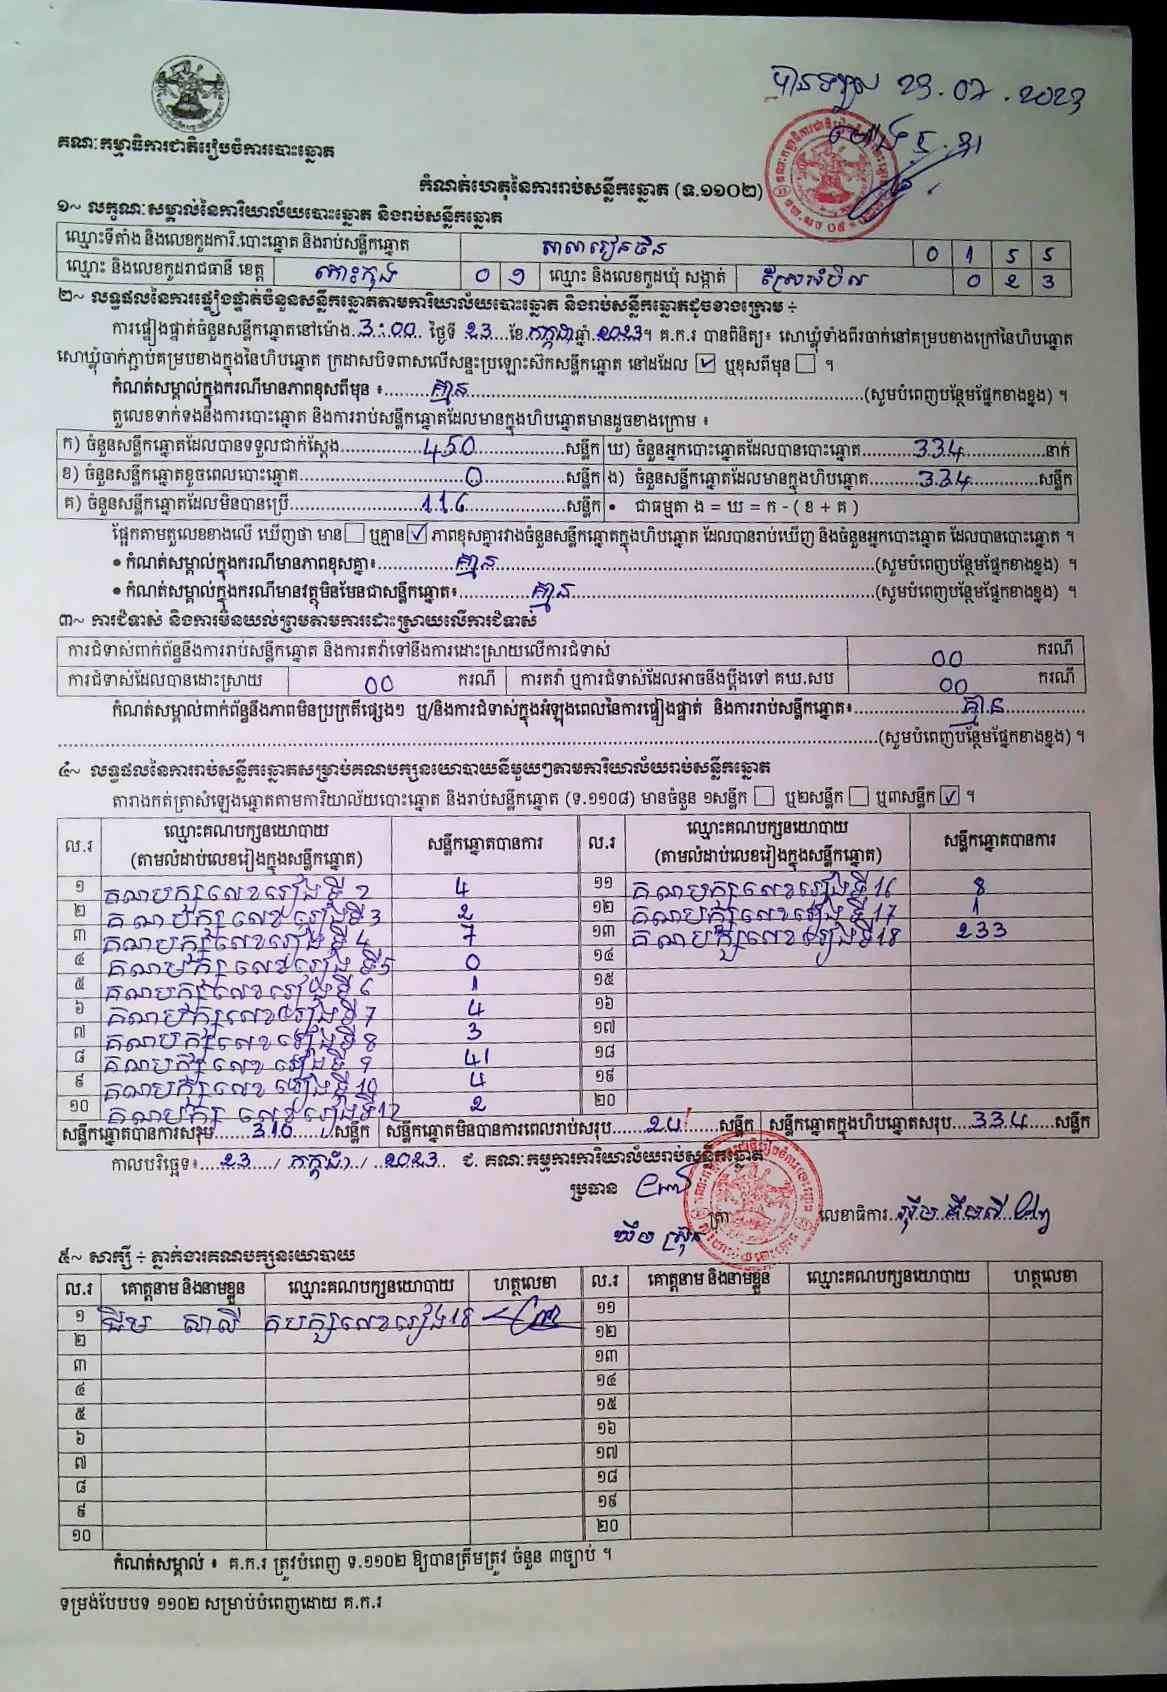 បានទទួល 23.07.2023
គណៈកម្មាធិការជាតិរៀបចំការបោះឆ្នោត
កំណត់ហេតុនៃការរាប់សន្លឹកឆ្នោត (ទ.១១០២)
១~ លក្ខណៈសម្គាល់នៃការិយាល័យបោះឆ្នោត និងរាប់សន្លឹកឆ្នោត
ឈ្មោះទីតាំង និងលេខកូដការិ.បោះឆ្នោត និងរាប់សន្លឹកឆ្នោត សាលារៀនចិន 0 1 5 5
ឈ្មោះ និងលេខកូដរាជធានី ខេត្ត កោះកុង 0 9 ឈ្មោះ និងលេខកូដឃុំ សង្កាត់ ស្រែអំបិល 0 2 3
២~ លទ្ធផលនៃការផ្ទៀងផ្ទាត់ចំនួនសន្លឹកឆ្នោតតាមការិយាល័យបោះឆ្នោត និងរាប់សន្លឹកឆ្នោតដូចខាងក្រោម ÷
ការផ្ទៀងផ្ទាត់ចំនួនសន្លឹកឆ្នោតនៅម៉ោង 3:00 ថ្ងៃទី 23 ខែ កក្កដា ឆ្នាំ 2023។ គ.ក.រ បានពិនិត្យ៖ សោឃ្លុំទាំងពីរចាក់នៅគម្របខាងក្រៅនៃហិបឆ្នោត
សោឃ្លុំចាក់ភ្ជាប់គម្របខាងក្នុងនៃហិបឆ្នោត ក្រដាសបិទពាសលើសន្ទះប្រឡោះស៊កសន្លឹកឆ្នោត នៅដដែល ☑ ឬខុសពីមុន ☐ ។
កំណត់សម្គាល់ក្នុងករណីមានភាពខុសពីមុន ៖ គ្មាន (សូមបំពេញបន្ថែមផ្នែកខាងខ្នង) ។
តួលេខទាក់ទងនឹងការបោះឆ្នោត និងការរាប់សន្លឹកឆ្នោតដែលមានក្នុងហិបឆ្នោតមានដូចខាងក្រោម ៖
ក) ចំនួនសន្លឹកឆ្នោតដែលបានទទួលជាក់ស្តែង 450 សន្លឹក ឃ) ចំនួនអ្នកបោះឆ្នោតដែលបានបោះឆ្នោត 334 នាក់
ខ) ចំនួនសន្លឹកឆ្នោតខូចពេលបោះឆ្នោត 0 សន្លឹក ង) ចំនួនសន្លឹកឆ្នោតដែលមានក្នុងហិបឆ្នោត 334 សន្លឹក
គ) ចំនួនសន្លឹកឆ្នោតដែលមិនបានប្រើ 116 សន្លឹក • ជាធម្មតា ង = ឃ = ក - ( ខ + គ )
ផ្អែកតាមតួលេខខាងលើ ឃើញថា មាន ☐ ឬគ្មាន ☑ ភាពខុសគ្នារវាងចំនួនសន្លឹកឆ្នោតក្នុងហិបឆ្នោត ដែលបានរាប់ឃើញ និងចំនួនអ្នកបោះឆ្នោត ដែលបានបោះឆ្នោត ។
• កំណត់សម្គាល់ក្នុងករណីមានភាពខុសគ្នា៖ គ្មាន (សូមបំពេញបន្ថែមផ្នែកខាងខ្នង) ។
• កំណត់សម្គាល់ក្នុងករណីមានវត្ថុមិនមែនជាសន្លឹកឆ្នោត៖ គ្មាន (សូមបំពេញបន្ថែមផ្នែកខាងខ្នង) ។
៣~ ការជំទាស់ និងការមិនយល់ព្រមតាមការដោះស្រាយលើការជំទាស់
ការជំទាស់ពាក់ព័ន្ធនឹងការរាប់សន្លឹកឆ្នោត និងការតវ៉ាទៅនឹងការដោះស្រាយលើការជំទាស់ 00 ករណី
ការជំទាស់ដែលបានដោះស្រាយ 00 ករណី ការតវ៉ា ឬការជំទាស់ដែលអាចនឹងប្តឹងទៅ គឃ.សប 00 ករណី
កំណត់សម្គាល់ពាក់ព័ន្ធនឹងភាពមិនប្រក្រតីផ្សេងៗ ឬ/និងការជំទាស់ក្នុងអំឡុងពេលនៃការផ្ទៀងផ្ទាត់ និងការរាប់សន្លឹកឆ្នោត៖ គ្មាន
(សូមបំពេញបន្ថែមផ្នែកខាងខ្នង) ។
៤~ លទ្ធផលនៃការរាប់សន្លឹកឆ្នោតសម្រាប់គណបក្សនយោបាយនីមួយៗតាមការិយាល័យរាប់សន្លឹកឆ្នោត
តារាងកត់ត្រាសំឡេងឆ្នោតតាមការិយាល័យបោះឆ្នោត និងរាប់សន្លឹកឆ្នោត (ទ.១១០៨) មានចំនួន ១សន្លឹក ☐ ឬ២សន្លឹក ☐ ឬ៣សន្លឹក ☑ ។
ល.រ ឈ្មោះគណបក្សនយោបាយ (តាមលំដាប់លេខរៀងក្នុងសន្លឹកឆ្នោត) សន្លឹកឆ្នោតបានការ ល.រ ឈ្មោះគណបក្សនយោបាយ (តាមលំដាប់លេខរៀងក្នុងសន្លឹកឆ្នោត) សន្លឹកឆ្នោតបានការ
១ គណបក្សលេខរៀងទី 2 4 ១១ គណបក្សលេខរៀងទី 16 8
២ គណបក្សលេខរៀងទី 3 2 ១២ គណបក្សលេខរៀងទី 17 1
៣ គណបក្សលេខរៀងទី 4 7 ១៣ គណបក្សលេខរៀងទី 18 233
៤ គណបក្សលេខរៀងទី 5 0 ១៤
៥ គណបក្សលេខរៀងទី 6 1 ១៥
៦ គណបក្សលេខរៀងទី 7 4 ១៦
៧ គណបក្សលេខរៀងទី 8 3 ១៧
៨ គណបក្សលេខរៀងទី 9 41 ១៨
៩ គណបក្សលេខរៀងទី 10 4 ១៩
១០ គណបក្សលេខរៀងទី 12 2 ២០
សន្លឹកឆ្នោតបានការសរុប 310 សន្លឹក សន្លឹកឆ្នោតមិនបានការពេលរាប់សរុប 24 សន្លឹក សន្លឹកឆ្នោតក្នុងហិបឆ្នោតសរុប 334 សន្លឹក
កាលបរិច្ឆេទ៖ 23 / កក្កដា / 2023 ជ. គណៈកម្មការការិយាល័យរាប់សន្លឹកឆ្នោត
ប្រធាន
ត្រា លេខាធិការ
៥~ សាក្សី ÷ ភ្នាក់ងារគណបក្សនយោបាយ
ល.រ គោត្តនាម និងនាមខ្លួន ឈ្មោះគណបក្សនយោបាយ ហត្ថលេខា ល.រ គោត្តនាម និងនាមខ្លួន ឈ្មោះគណបក្សនយោបាយ ហត្ថលេខា
១ ជឹម សាលី គបក្សលេខរៀង 18 ១១
២ ១២
៣ ១៣
៤ ១៤
៥ ១៥
៦ ១៦
៧ ១៧
៨ ១៨
៩ ១៩
១០ ២០
កំណត់សម្គាល់ ៖ គ.ក.រ ត្រូវបំពេញ ទ.១១០២ ឱ្យបានត្រឹមត្រូវ ចំនួន ៣ច្បាប់ ។
ទម្រង់បែបបទ ១១០២ សម្រាប់បំពេញដោយ គ.ក.រ